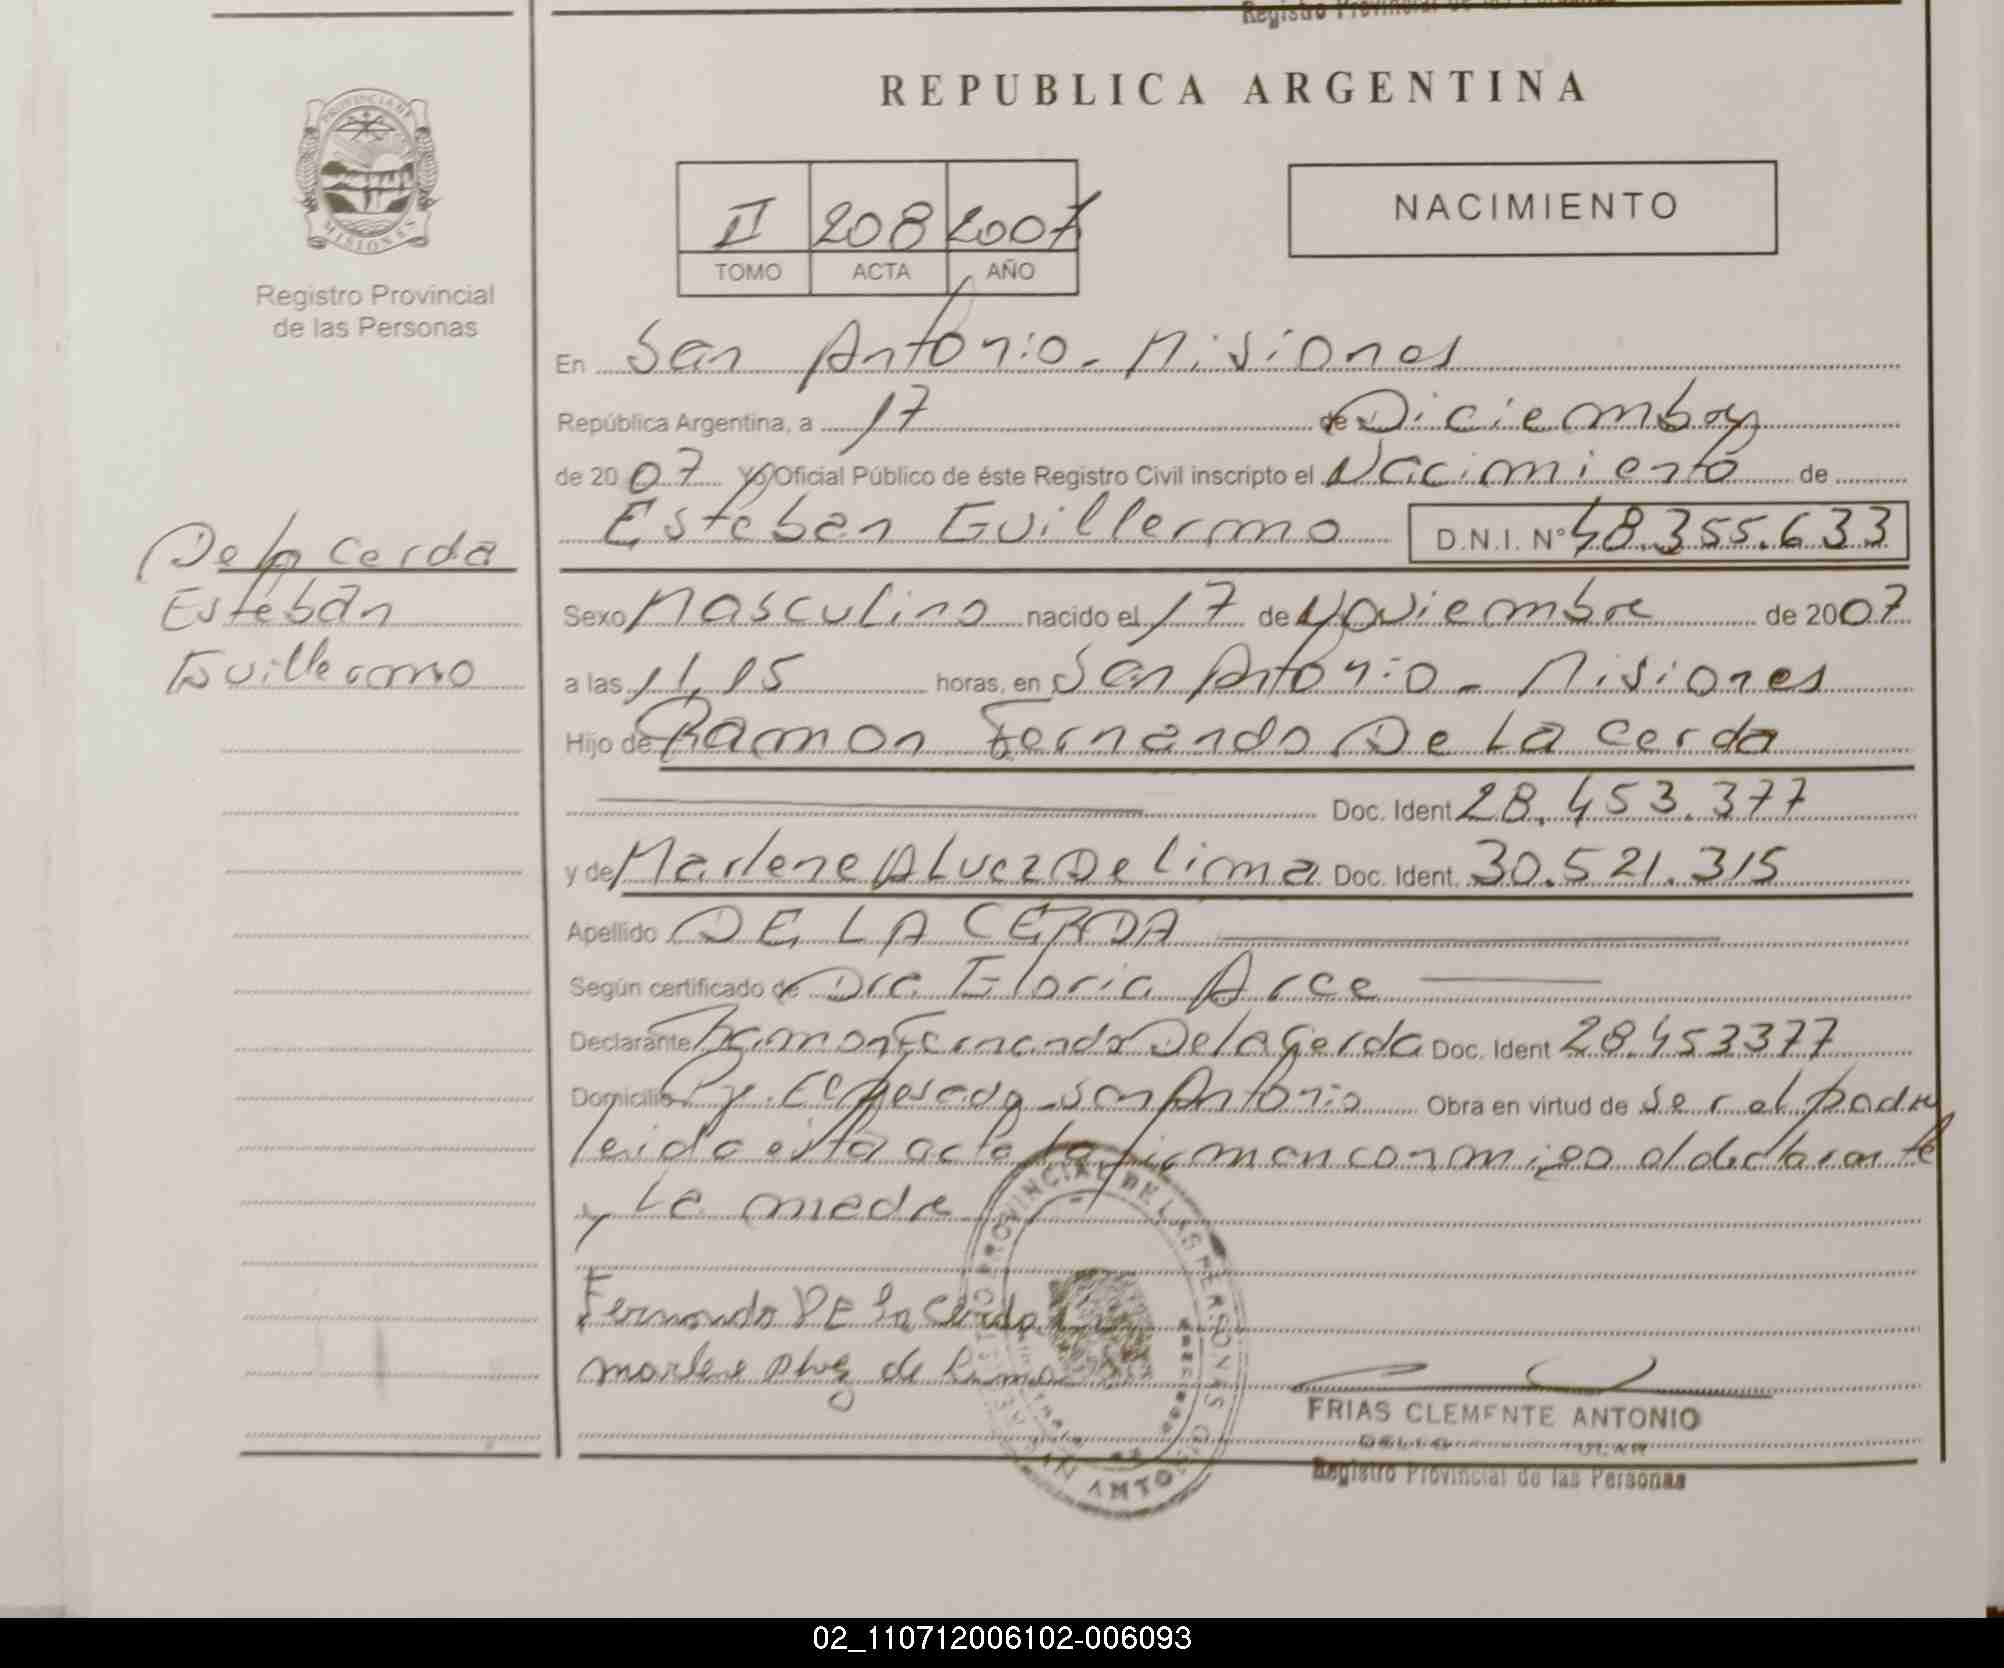 Registro Provincial de las Personas
REPUBLICA ARGENTINA
PROVINCIA DE
MISIONES
Registro Provincial
de las Personas
II 208 2007
TOMO ACTA AÑO
NACIMIENTO
En San Antonio - Misiones
República Argentina, a 17 de Diciembre
de 2007 Yo Oficial Público de éste Registro Civil inscripto el Nacimiento de
Esteban Guillermo D.N.I. Nº 48.355.633
De la Cerda
Esteban
Guillermo
Sexo Masculino nacido el 17 de Noviembre de 2007
a las 11,15 horas, en San Antonio - Misiones
Hijo de Ramon Fernando De La Cerda
Doc. Ident 28.453.377
y de Marlene Alvez De lima Doc. Ident. 30.521.315
Apellido DE LA CERDA
Según certificado de Dra Gloria Arce
Declarante Ramon Fernando De la Cerda Doc. Ident 28.453377
Domicilio San Antonio Obra en virtud de ser el padre
leida esta acta la firman conmigo el declarante
y la madre
Fernando DE la Cerda
marlene Alvez de Lima
REGISTRO PROVINCIAL DE LAS PERSONAS
SAN ANTONIO
FRIAS CLEMENTE ANTONIO
Registro Provincial de las Personas
02_110712006102-006093